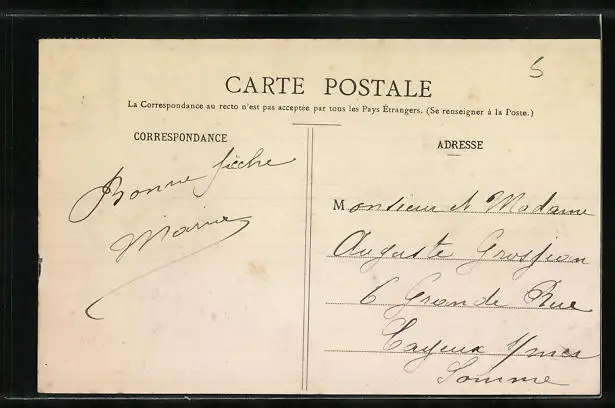 5
CARTE POSTALE
La Correspondance au recto n'est pas acceptée par tous les Pays Étrangers. (Se renseigner à la Poste.)
CORRESPONDANCE
Bonne pêche
Marie
ADRESSE
Monsieur et Madame
Auguste Grosjean
6 Grande Rue
Cayeux s/mer
Somme